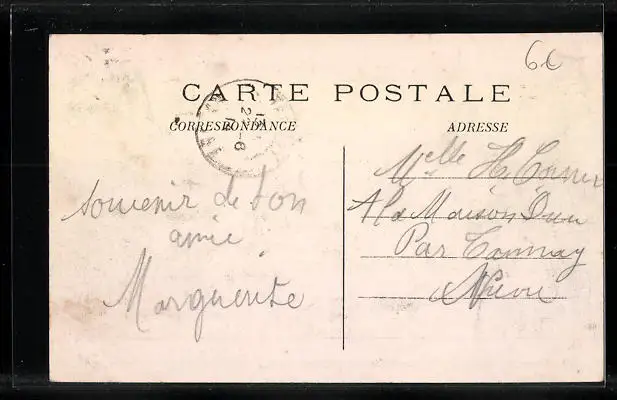 6
CARTE POSTALE
CORRESPONDANCE
ADRESSE
souvenir de ton
amie
Marguerite
Melle H.
A la Maison
Par Tannay
Nièvre